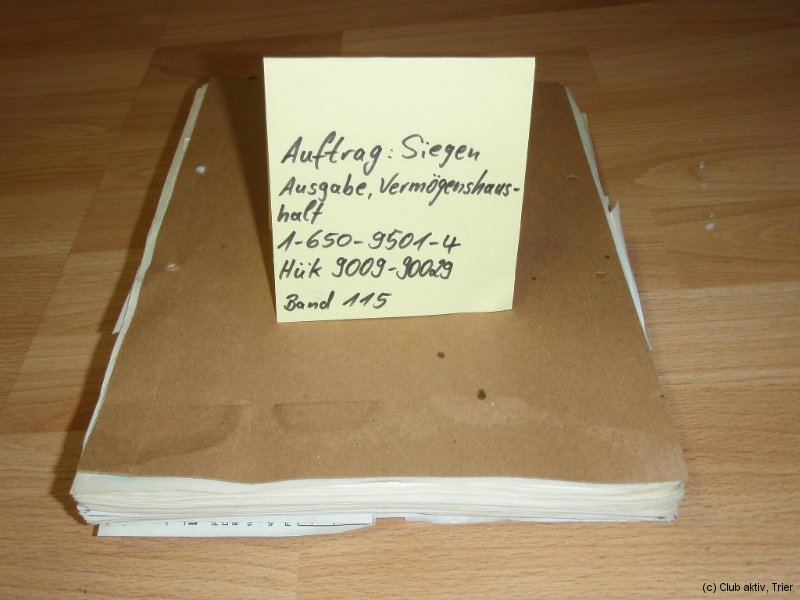 Auftrag: Siegen
Ausgabe, Vermögenshaus-
halt
1-650-9501-4
Hük 9009-90029
Band 115
(c) Club aktiv, Trier